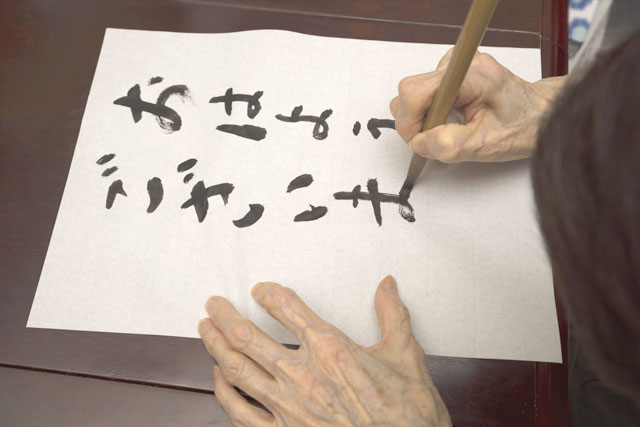 おはよう
ございま